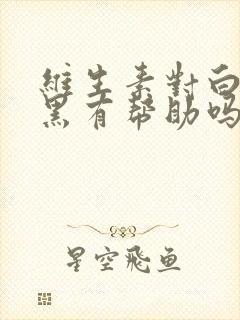 維生素對白
黑有幫助吗
星空飛鱼